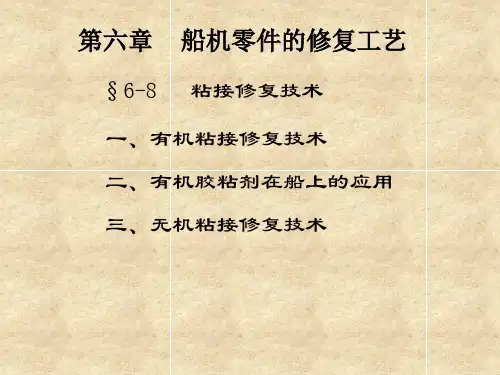 第六章 船机零件的修复工艺
§6-8 粘接修复技术
一、有机粘接修复技术
二、有机胶粘剂在船上的应用
三、无机粘接修复技术